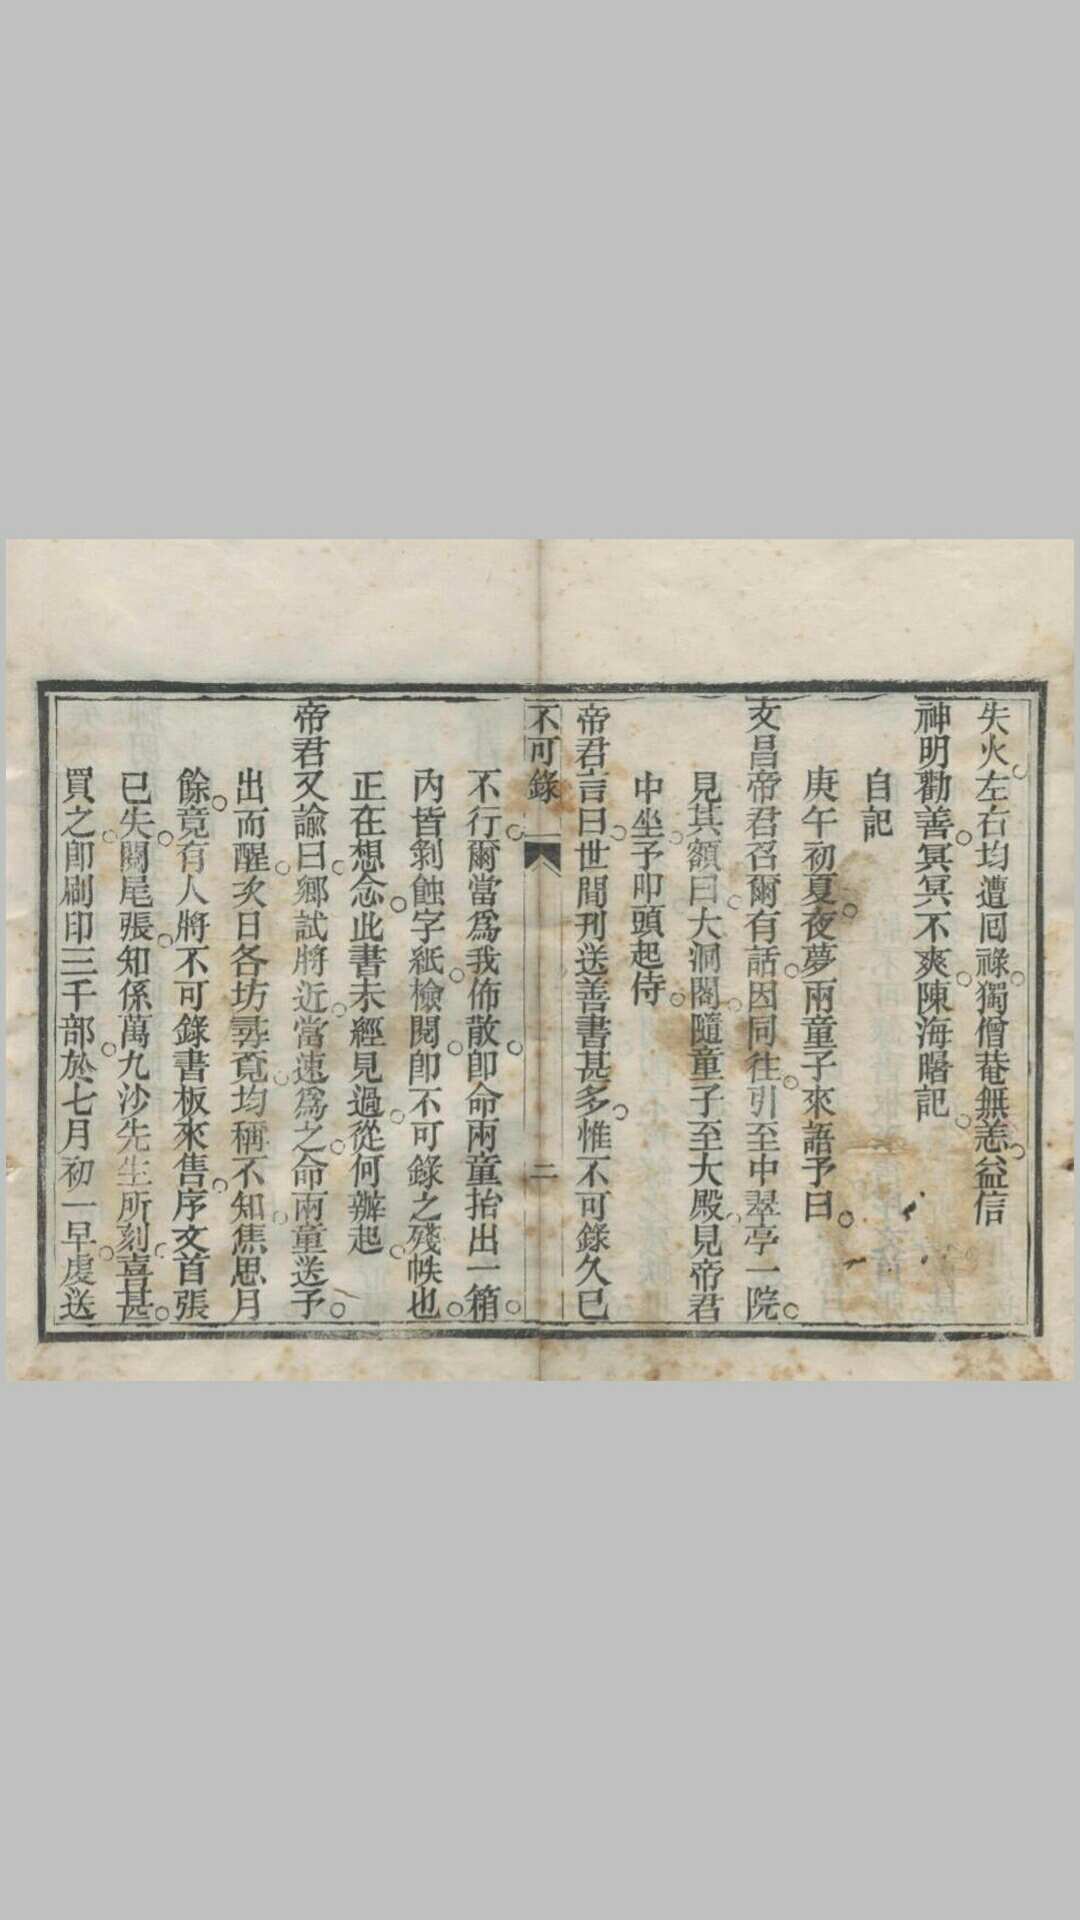 失火左右均遭回祿獨僧菴無恙益信
神明勸善冥冥不爽陳海曙記
自記
庚午初夏夜夢兩童子來語予曰
文昌帝君召爾有話因同往引至中翠亭一院
見其額曰大洞閣隨童子至大殿見帝君
中坐予叩頭起侍
帝君言曰世間刊送善書甚多惟不可錄久已
不可錄 二
不行爾當爲我佈散卽命兩童抬出一箱
內皆剝蝕字紙檢閱卽不可錄之殘帙也
正在想念此書未經見過從何辦起
帝君又諭曰鄉試將近當速爲之命兩童送予
出而醒次日各坊尋覓均稱不知焦思月
餘竟有人將不可錄書板來售序文首張
已失闗尾張知係萬九沙先生所刻喜甚
買之卽刷印三千部於七月初一早虔送